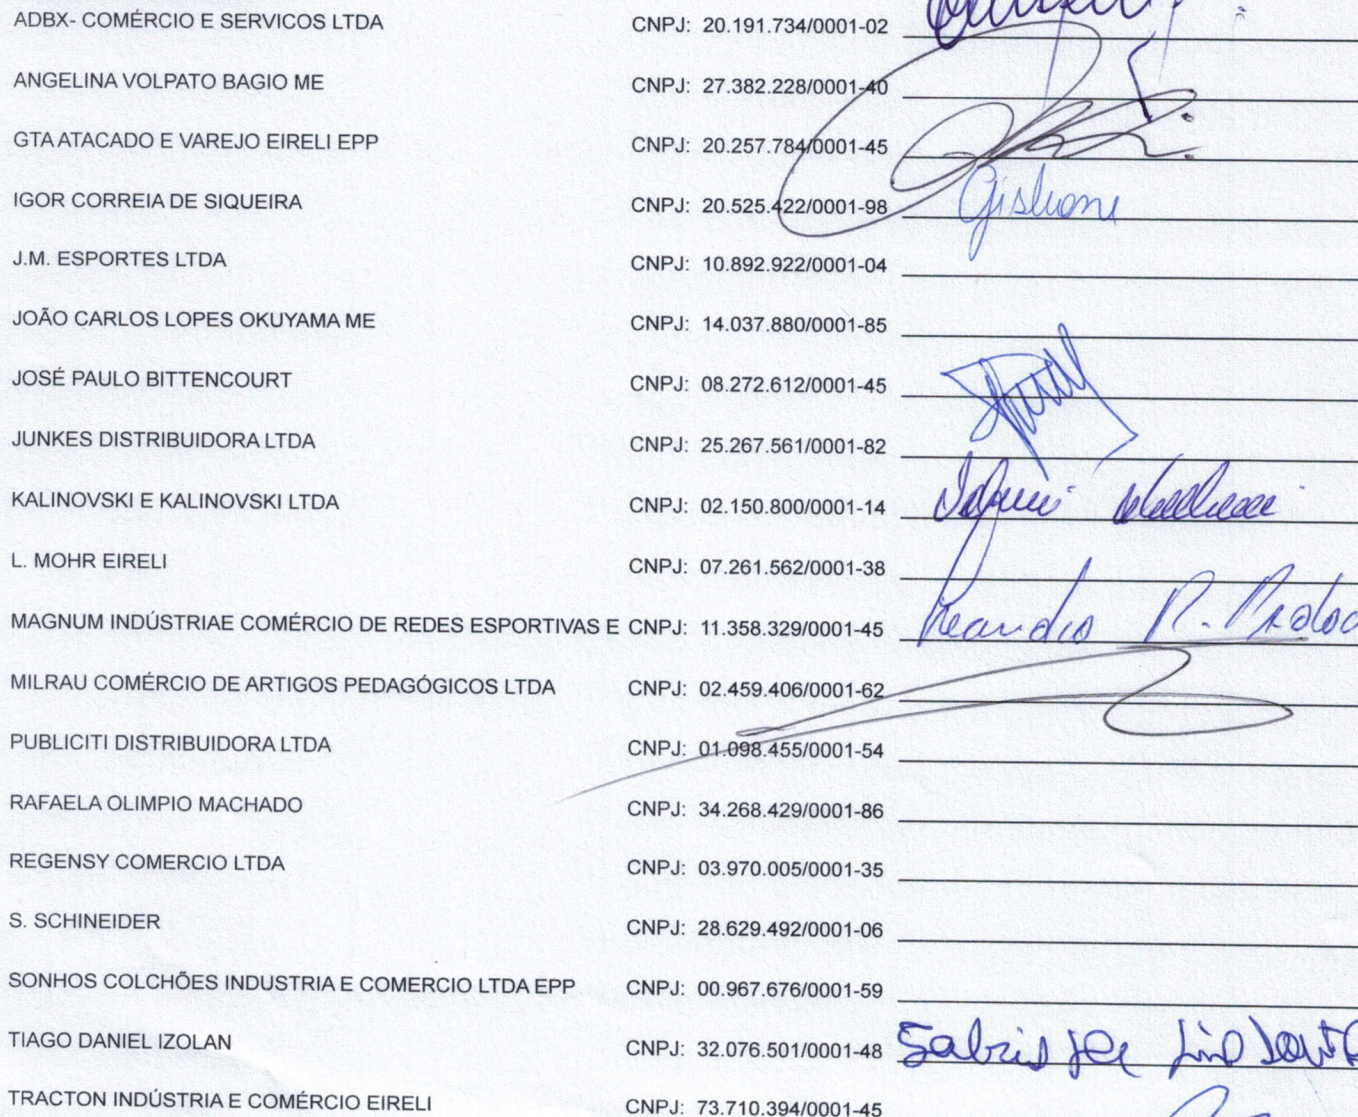 ADBX- COMÉRCIO E SERVICOS LTDA CNPJ: 20.191.734/0001-02
ANGELINA VOLPATO BAGIO ME CNPJ: 27.382.228/0001-40
GTA ATACADO E VAREJO EIRELI EPP CNPJ: 20.257.784/0001-45
IGOR CORREIA DE SIQUEIRA CNPJ: 20.525.422/0001-98
J.M. ESPORTES LTDA CNPJ: 10.892.922/0001-04
JOÃO CARLOS LOPES OKUYAMA ME CNPJ: 14.037.880/0001-85
JOSÉ PAULO BITTENCOURT CNPJ: 08.272.612/0001-45
JUNKES DISTRIBUIDORA LTDA CNPJ: 25.267.561/0001-82
KALINOVSKI E KALINOVSKI LTDA CNPJ: 02.150.800/0001-14
L. MOHR EIRELI CNPJ: 07.261.562/0001-38
MAGNUM INDÚSTRIAE COMÉRCIO DE REDES ESPORTIVAS E CNPJ: 11.358.329/0001-45
MILRAU COMÉRCIO DE ARTIGOS PEDAGÓGICOS LTDA CNPJ: 02.459.406/0001-62
PUBLICITI DISTRIBUIDORA LTDA CNPJ: 01.098.455/0001-54
RAFAELA OLIMPIO MACHADO CNPJ: 34.268.429/0001-86
REGENSY COMERCIO LTDA CNPJ: 03.970.005/0001-35
S. SCHINEIDER CNPJ: 28.629.492/0001-06
SONHOS COLCHÕES INDUSTRIA E COMERCIO LTDA EPP CNPJ: 00.967.676/0001-59
TIAGO DANIEL IZOLAN CNPJ: 32.076.501/0001-48
TRACTON INDÚSTRIA E COMÉRCIO EIRELI CNPJ: 73.710.394/0001-45